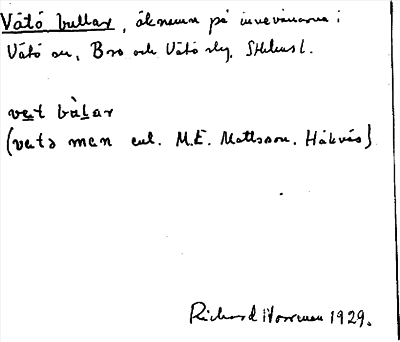 Vätö bullar, öknamn på innevånarna i
Vätö sn, Bro och Vätö slg, Sthlms l.
vȩt bàlar
(vetə men enl. M.E. Mattsson. Håkvés)
Richard Norrman 1929.